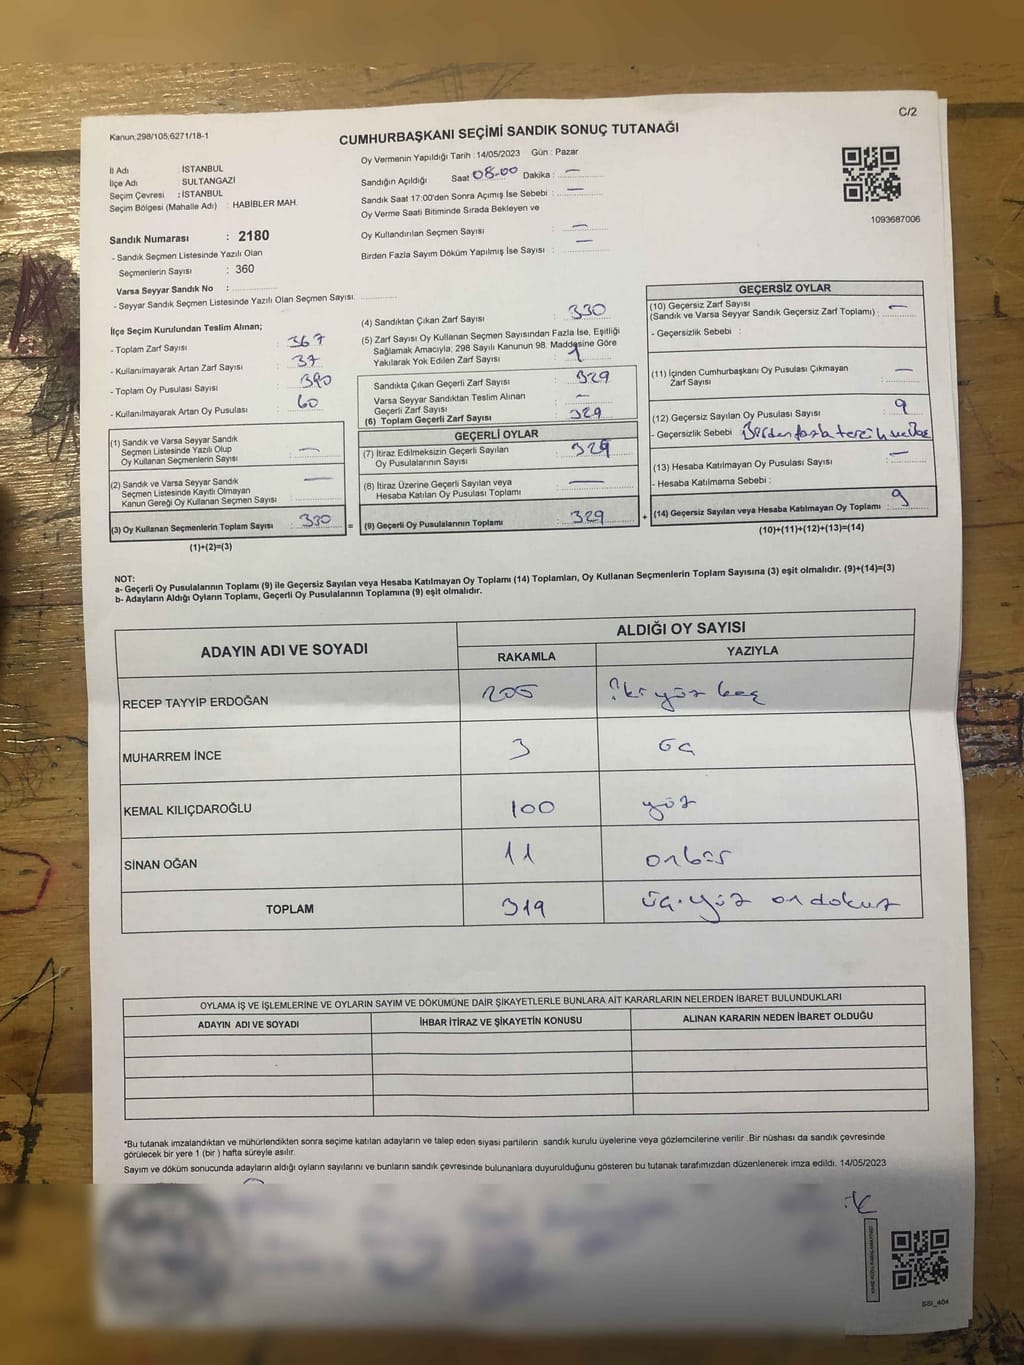 C/2
Kanun;298/105;6271/18-1
CUMHURBAŞKANI SEÇİMİ SANDIK SONUÇ TUTANAĞI
İl Adı : İSTANBUL
İlçe Adı SULTANGAZİ
Seçim Çevresi : İSTANBUL
Seçim Bölgesi (Mahalle Adı) : HABİBLER MAH.
Sandık Numarası : 2180
- Sandık Seçmen Listesinde Yazılı Olan
Seçmenlerin Sayısı : 360
Varsa Seyyar Sandık No :
- Seyyar Sandık Seçmen Listesinde Yazılı Olan Seçmen Sayısı:
Oy Vermenin Yapıldığı Tarih : 14/05/2023 Gün : Pazar
Sandığın Açıldığı Saat 08.00 Dakika : —
Sandık Saat 17:00'den Sonra Açımış İse Sebebi : —
Oy Verme Saati Bitiminde Sırada Bekleyen ve
Oy Kullandırılan Seçmen Sayısı : —
Birden Fazla Sayım Döküm Yapılmış İse Sayısı : —
1093687006
İlçe Seçim Kurulundan Teslim Alınan;
- Toplam Zarf Sayısı : 367
- Kullanılmayarak Artan Zarf Sayısı : 37
- Toplam Oy Pusulası Sayısı : 390
- Kullanılmayarak Artan Oy Pusulası : 60
(1) Sandık ve Varsa Seyyar Sandık
Seçmen Listesinde Yazılı Olup
Oy Kullanan Seçmenlerin Sayısı : —
(2) Sandık ve Varsa Seyyar Sandık
Seçmen Listesinde Kayıtlı Olmayan
Kanun Gereği Oy Kullanan Seçmen Sayısı : —
(3) Oy Kullanan Seçmenlerin Toplam Sayısı : 330 =
(1)+(2)=(3)
(4) Sandıktan Çıkan Zarf Sayısı : 330
(5) Zarf Sayısı Oy Kullanan Seçmen Sayısından Fazla İse, Eşitliği
Sağlamak Amacıyla; 298 Sayılı Kanunun 98. Maddesine Göre
Yakılarak Yok Edilen Zarf Sayısı : 1
Sandıkta Çıkan Geçerli Zarf Sayısı : 329
Varsa Seyyar Sandıktan Teslim Alınan
Geçerli Zarf Sayısı : —
(6) Toplam Geçerli Zarf Sayısı : 329
GEÇERLİ OYLAR
(7) İtiraz Edilmeksizin Geçerli Sayılan
Oy Pusulalarının Sayısı : 329
(8) İtiraz Üzerine Geçerli Sayılan veya
Hesaba Katılan Oy Pusulası Toplamı : —
(9) Geçerli Oy Pusulalarının Toplamı : 329 +
GEÇERSİZ OYLAR
(10) Geçersiz Zarf Sayısı
(Sandık ve Varsa Seyyar Sandık Geçersiz Zarf Toplamı) : —
- Geçersizlik Sebebi :
(11) İçinden Cumhurbaşkanı Oy Pusulası Çıkmayan
Zarf Sayısı : —
(12) Geçersiz Sayılan Oy Pusulası Sayısı : 9
- Geçersizlik Sebebi Birden fazla tercih
(13) Hesaba Katılmayan Oy Pusulası Sayısı : —
- Hesaba Katılmama Sebebi :
(14) Geçersiz Sayılan veya Hesaba Katılmayan Oy Toplamı : 9
(10)+(11)+(12)+(13)=(14)
NOT:
a- Geçerli Oy Pusulalarının Toplamı (9) ile Geçersiz Sayılan veya Hesaba Katılmayan Oy Toplamı (14) Toplamları, Oy Kullanan Seçmenlerin Toplam Sayısına (3) eşit olmalıdır. (9)+(14)=(3)
b- Adayların Aldığı Oyların Toplamı, Geçerli Oy Pusulalarının Toplamına (9) eşit olmalıdır.
ADAYIN ADI VE SOYADI ALDIĞI OY SAYISI
RAKAMLA YAZIYLA
RECEP TAYYİP ERDOĞAN 205 iki yüz beş
MUHARREM İNCE 3 üç
KEMAL KILIÇDAROĞLU 100 yüz
SİNAN OĞAN 11 onbir
TOPLAM 319 üç.yüz on dokuz
OYLAMA İŞ VE İŞLEMLERİNE VE OYLARIN SAYIM VE DÖKÜMÜNE DAİR ŞİKAYETLERLE BUNLARA AİT KARARLARIN NELERDEN İBARET BULUNDUKLARI
ADAYIN ADI VE SOYADI İHBAR İTİRAZ VE ŞİKAYETİN KONUSU ALINAN KARARIN NEDEN İBARET OLDUĞU
*Bu tutanak imzalandıktan ve mühürlendikten sonra seçime katılan adayların ve talep eden siyasi partilerin sandık kurulu üyelerine veya gözlemcilerine verilir .Bir nüshası da sandık çevresinde
görülecek bir yere 1 (bir ) hafta süreyle asılır.
Sayım ve döküm sonucunda adayların aldığı oyların sayılarını ve bunların sandık çevresinde bulunanlara duyurulduğunu gösteren bu tutanak tarafımızdan düzenlenerek imza edildi. 14/05/2023
SSI_404